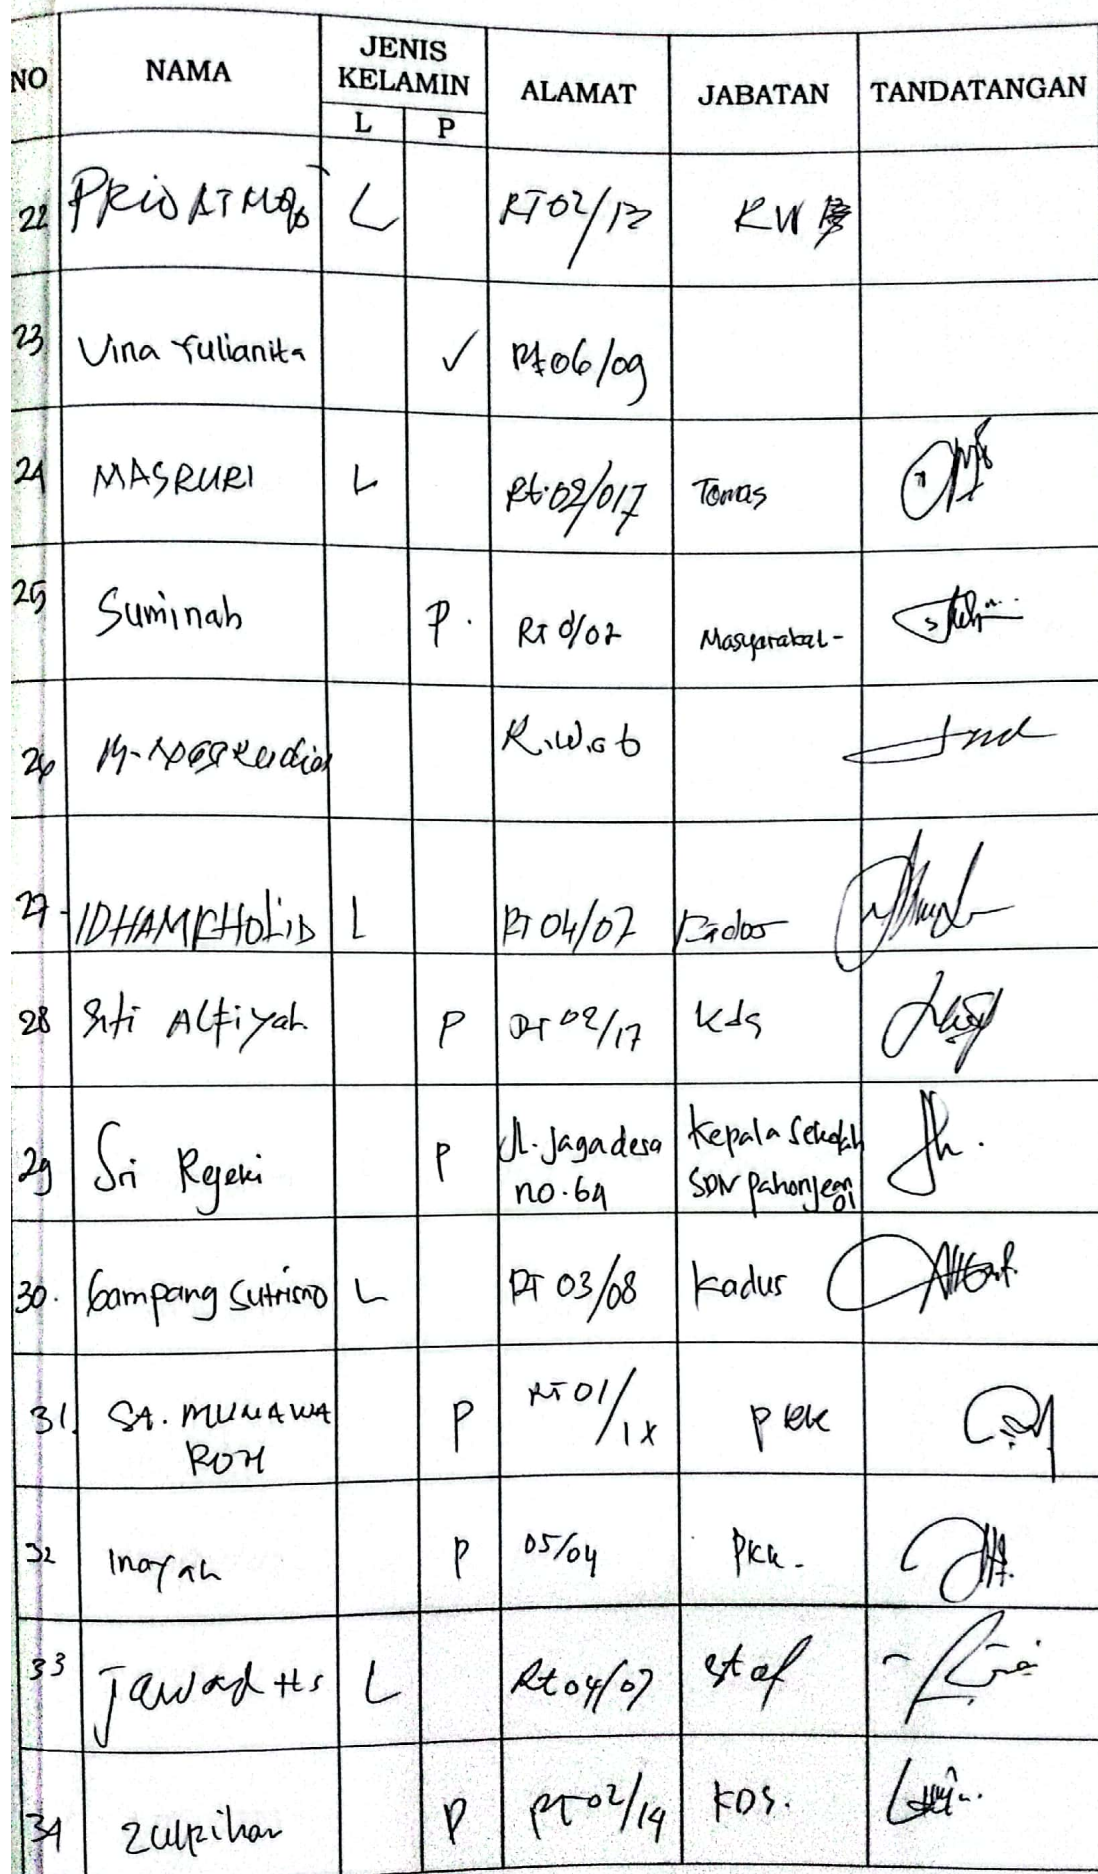 NO NAMA JENIS KELAMIN ALAMAT JABATAN TANDATANGAN
L P
22 L RT 02/ RW
23 Vina Yulianita ✓ Rt 06/09
24 MASRURI L Rt. 02/017 Tomas
25 Suminah P. RT /02 Masyarakat-
26 R.W.06
27 - IDHAM KHOLID L RT 04/07
28 Siti Alfiyah P RT 02/17 Kds
29 Sri Rejeki P Jl. Jagadesa no. 64 Kepala Sekolah SDN Pahonjean 01
30. Gampang Sutrisno L RT 03/08 Kadus
31. SA. MUNAWA ROH P RT 01/IX PKK
32 Inayah P 05/04 PKK-
33 Jawad Hs L Rt 04/07 staf
34 P RT 02/14 KDS.